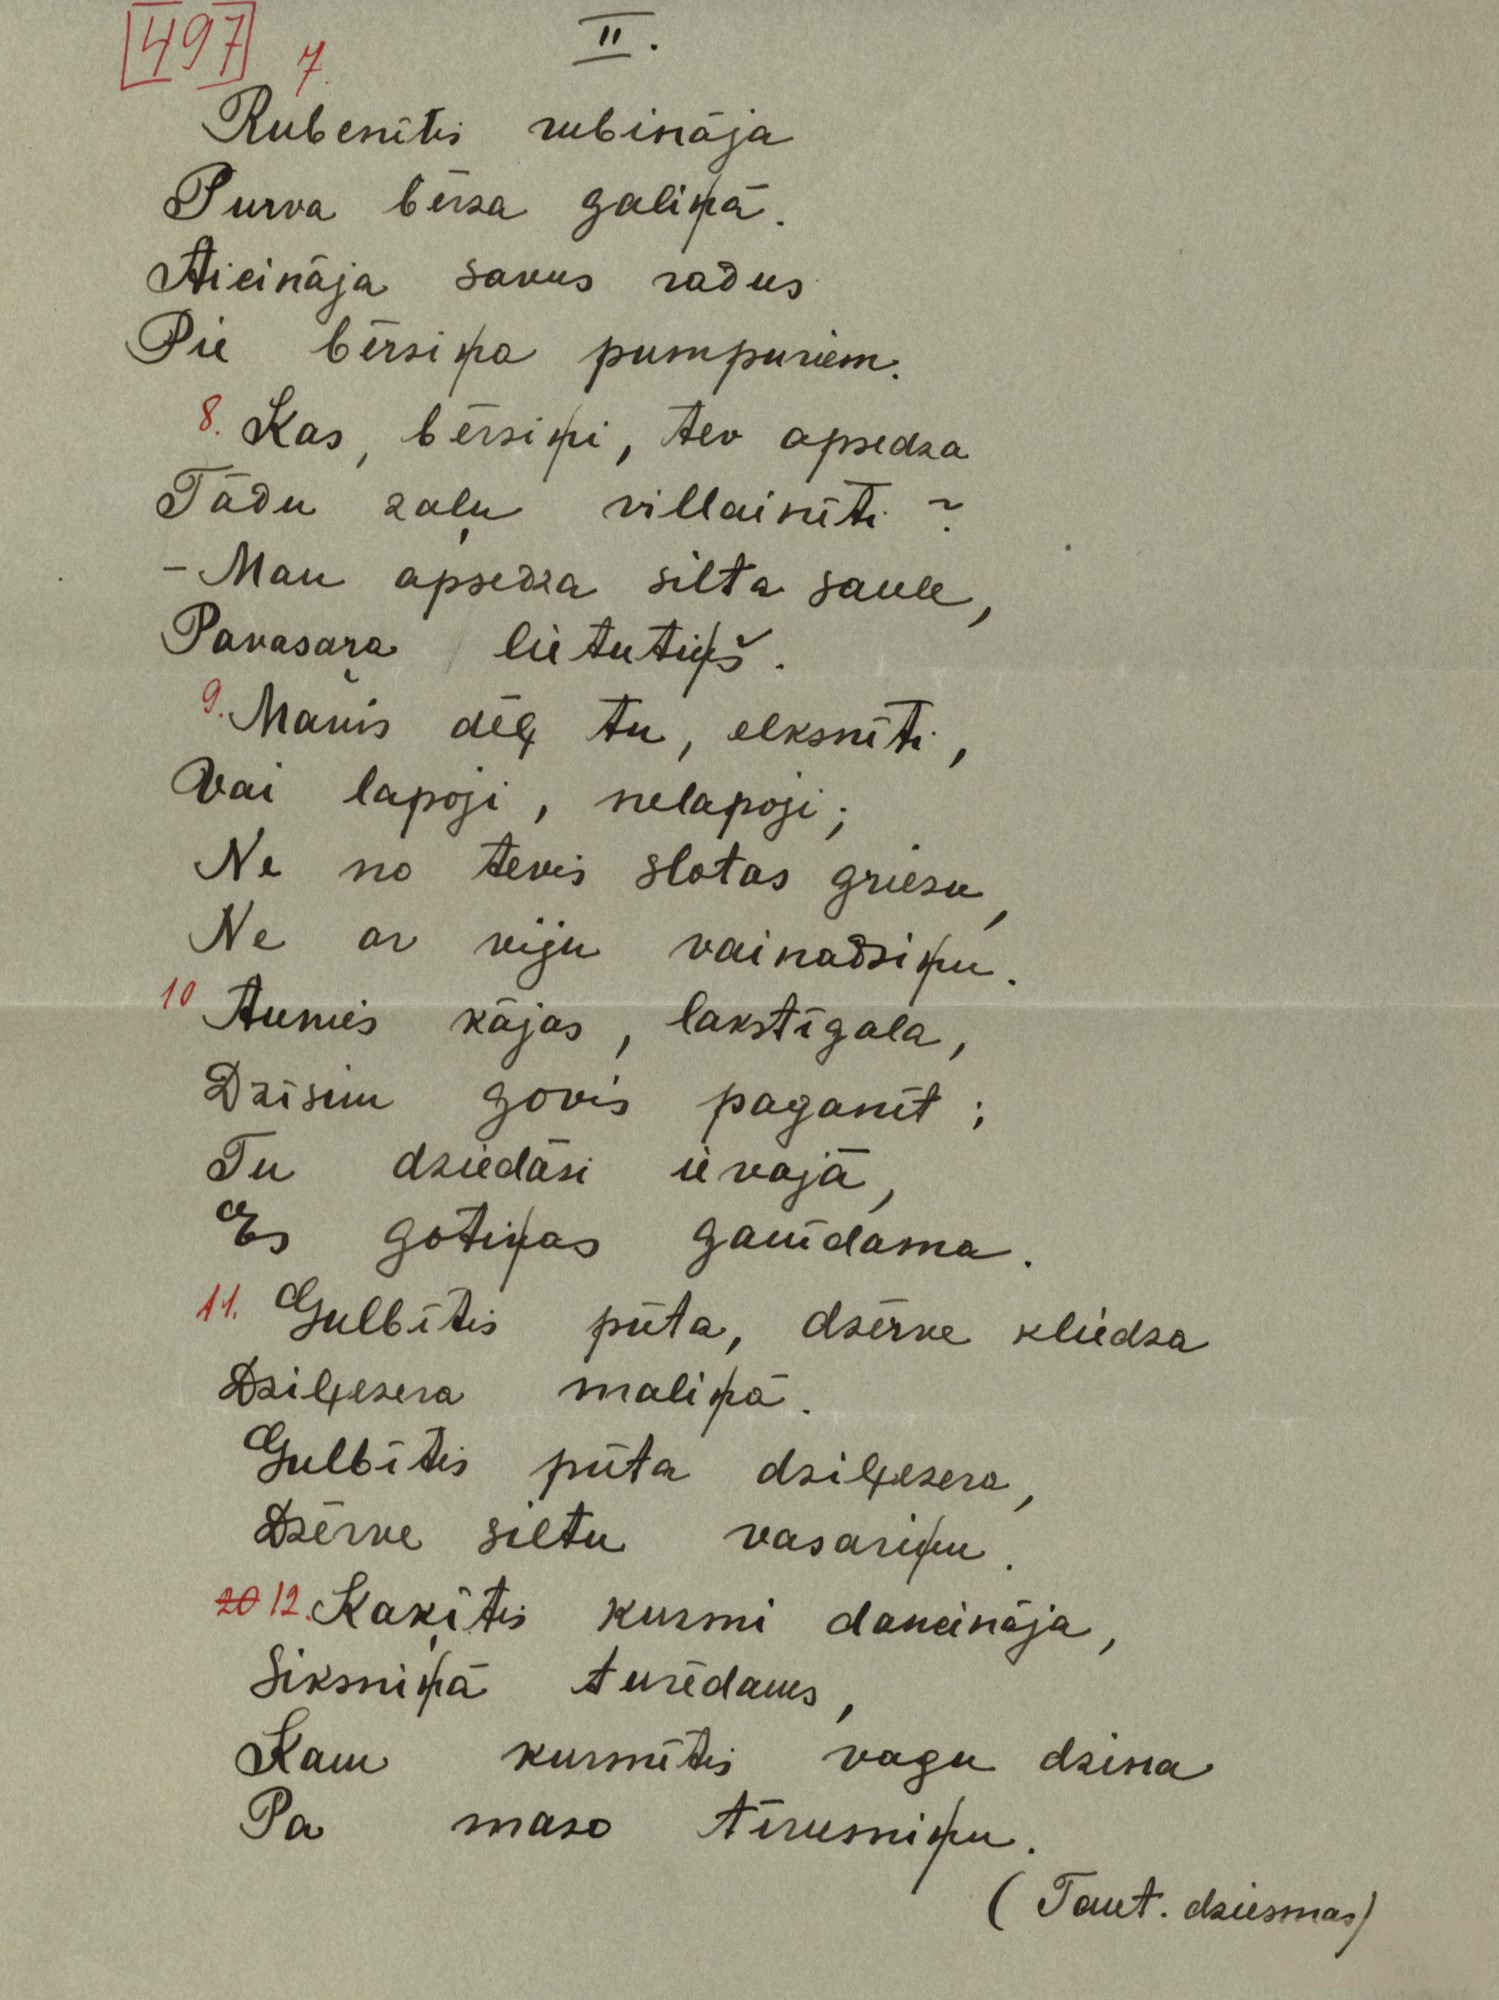 497 7. II.
Rubenītis rubināja
Purva bērza galiņā.
Aicināja savus radus
Pie bērziņa pumpuriem.
8. Kas, bērziņi, tev apsedza
Tādu zaļu villainīti?
- Man apsedza silta saule,
Pavasaŗa lietutiņš.
9. Manis dēļ tu, elksnīti,
Vai lapoji, nelapoji;
Ne no tevis slotas griezu,
Ne ar viju vainadziņu.
10 Aunies kājas, lakstīgala,
Dzīsim govis paganīt;
Tu dziedāsi ievajā,
Es gotiņas ganīdama.
11. Gulbītis pūta, dzērve kliedza
Dziļezera maliņā.
Gulbītis pūta dziļezera,
Dzērve siltu vasariņu.
20 12. Kaķītis kurmi dancināja,
Siksniņā turēdams,
Kam kurmītis vagu dzina
Pa mazo tīrumiņu.
(Taut. dziesmas)